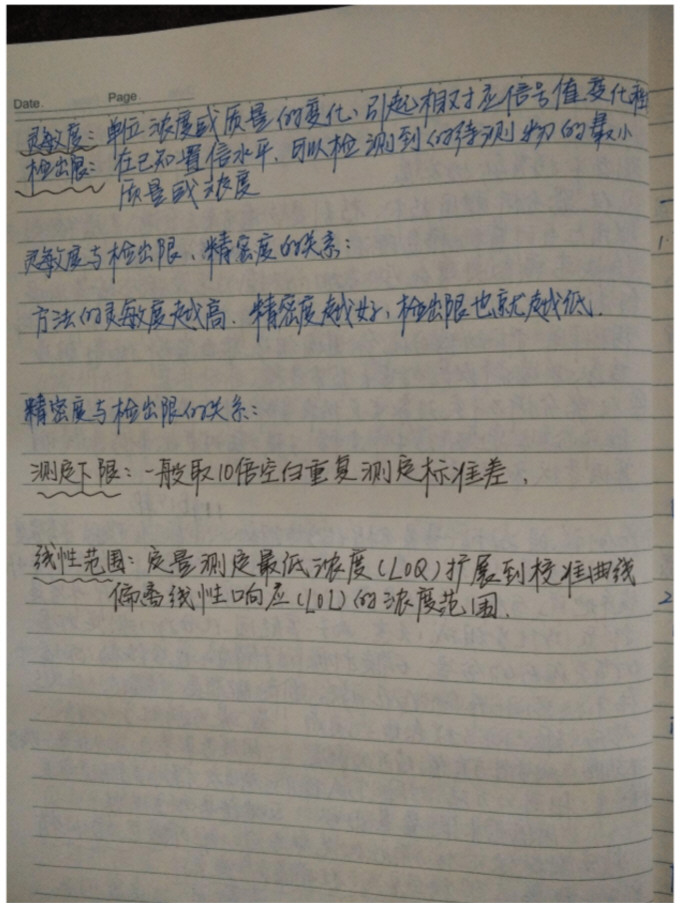 Date. Page
灵敏度：单位浓度或质量的变化、引起相对应信号值变化程
检出限：在已知置信水平，可以检测到的待测物的最小
质量或浓度
灵敏度与检出限、精密度的关系：
方法的灵敏度越高、精密度越好，检出限也就越低．
精密度与检出限的关系：
测定下限：一般取10倍空白重复测定标准差，
线性范围：定量测定最低浓度(LOQ)扩展到校准曲线
偏离线性响应(LOL)的浓度范围．
1.
2